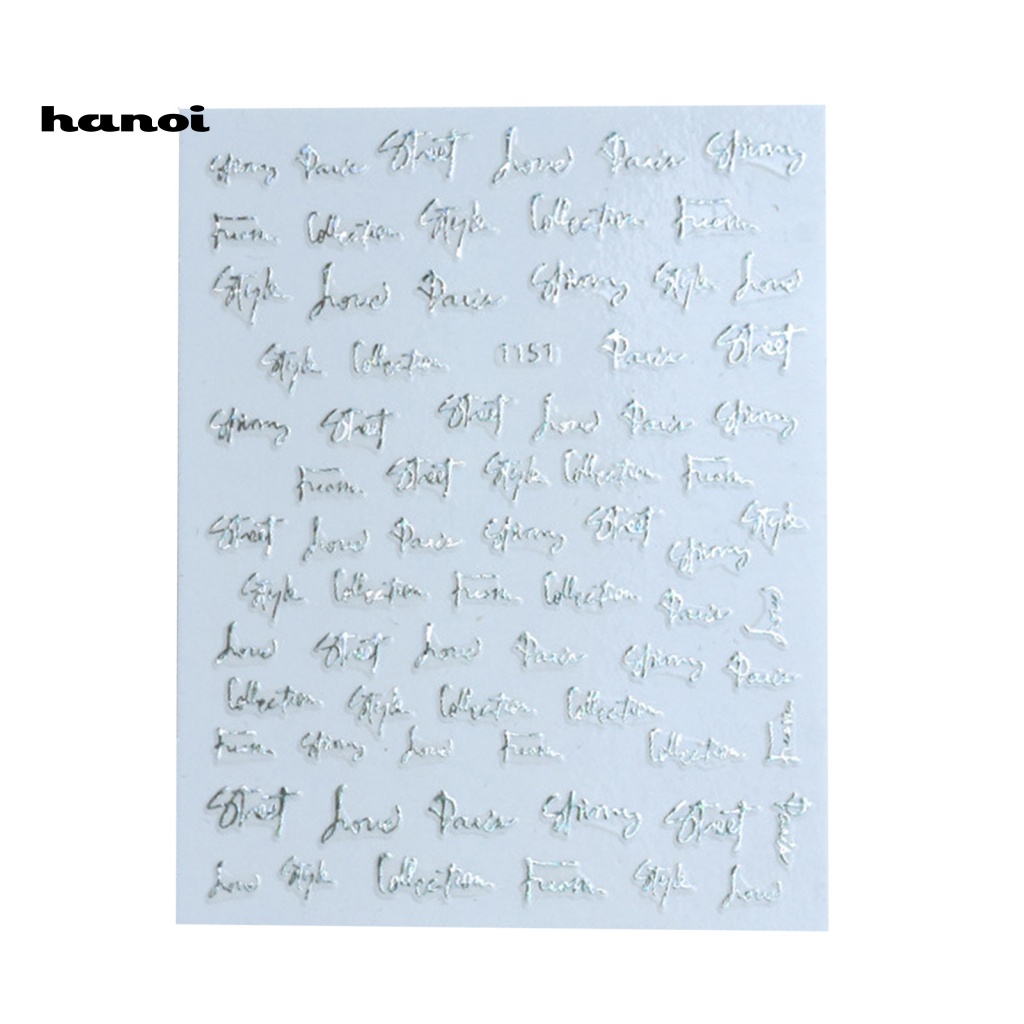 hanoi
Spring Paris Street Love Paris Spring
From Collection Style Collection From
Style Love Paris Spring Style Love
Style Collection 1151 Paris Street
Spring Street Street Love Paris Spring
From Street Style Collection From
Street Love Paris Spring Street Spring Style
Style Collection From Collection Paris Love
Love Street Love Paris Spring Paris
Collection Style Collection Collection
From Spring Love From Collection From
Street Love Paris Spring Street Paris
Love Style Collection From Style Love